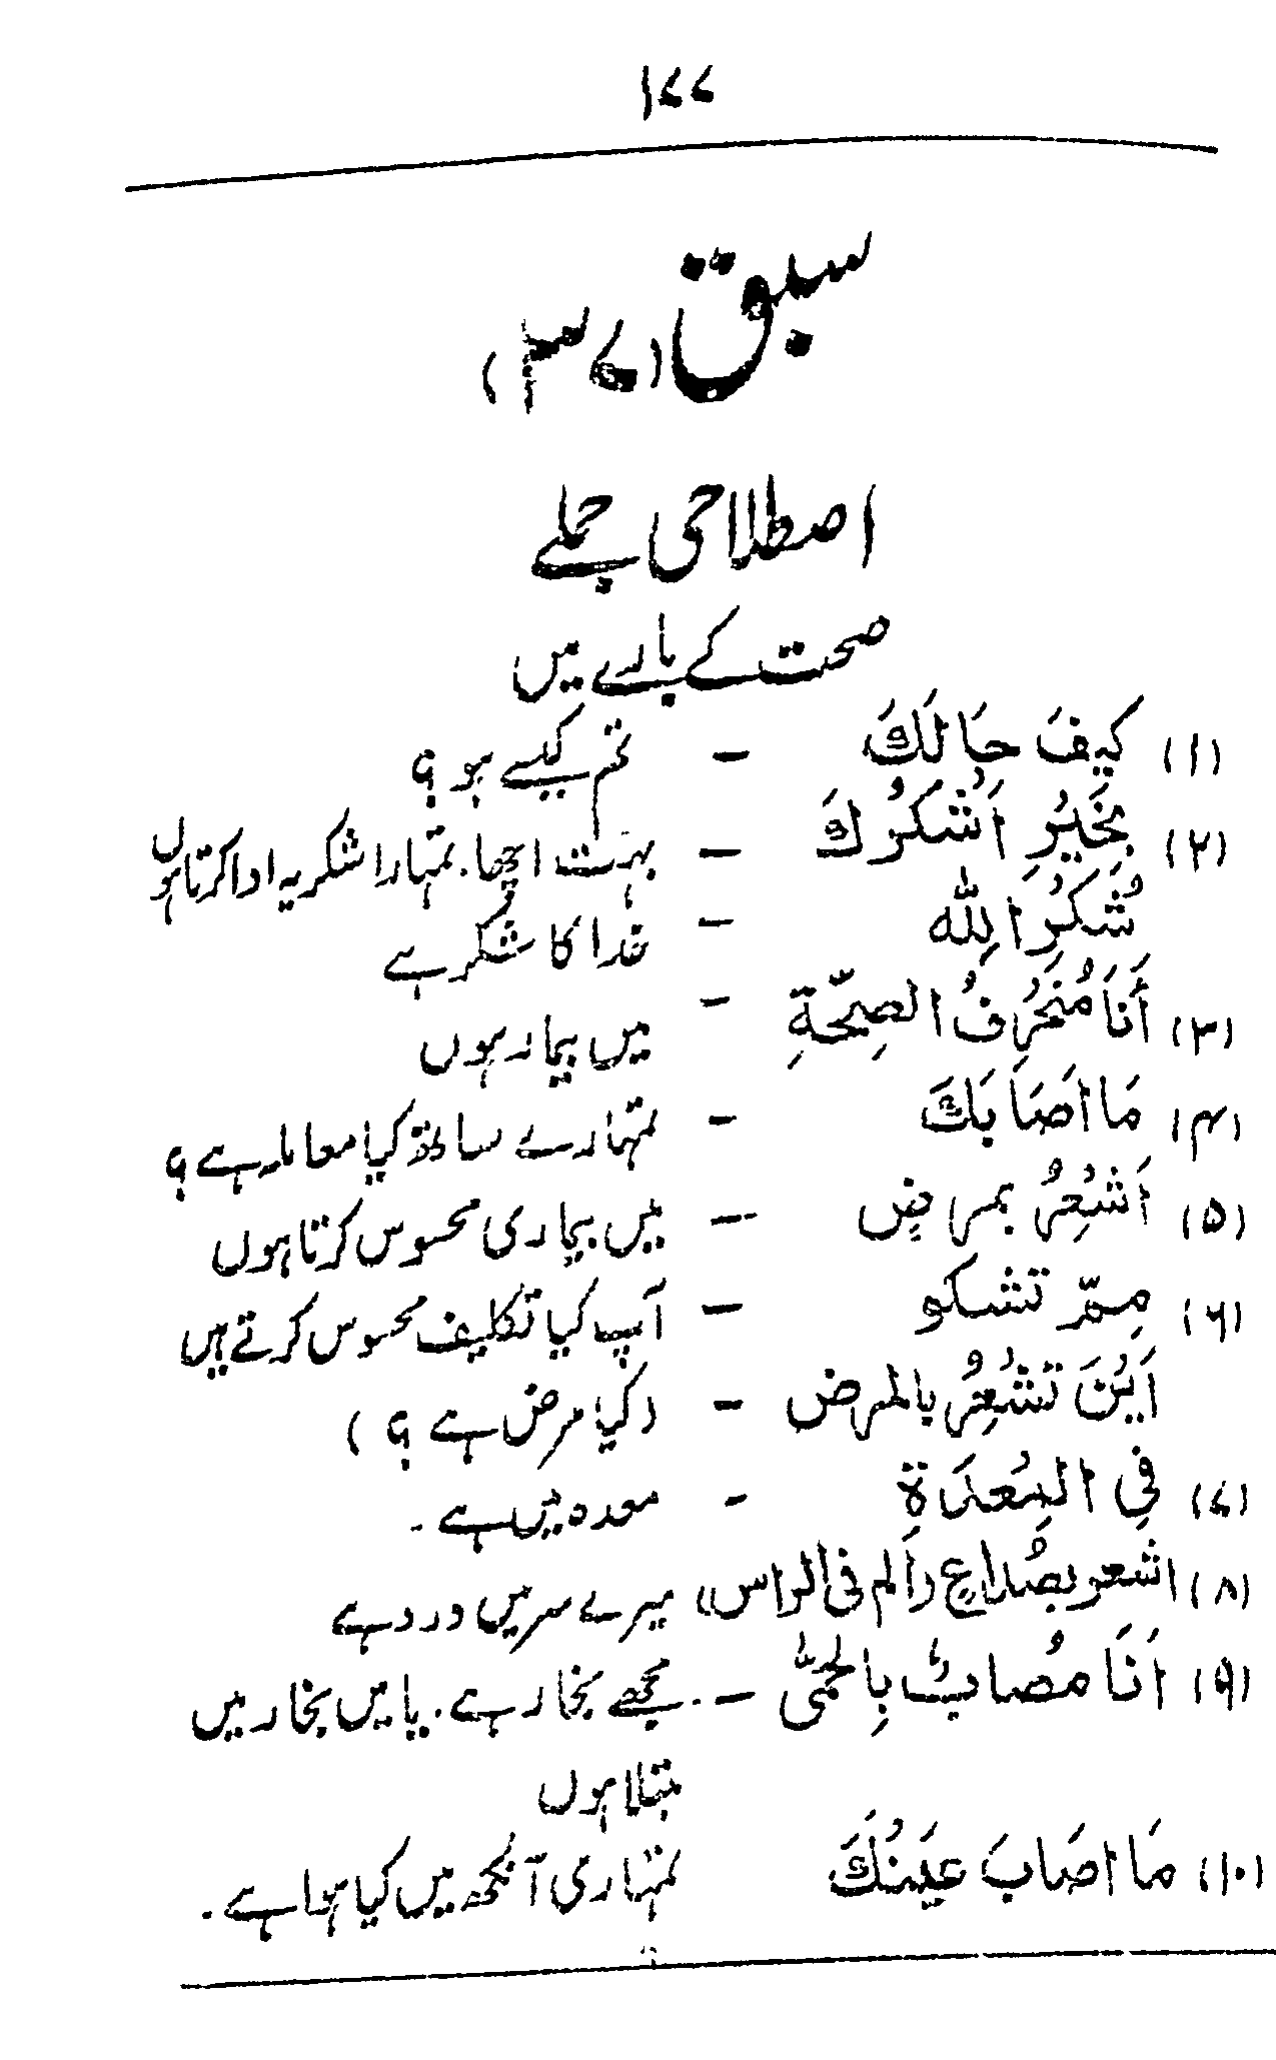 ۱۷۷
سبق (۳۷)
اصطلاحی جملے
صحت کے بارے میں
(۱) کَیفَ حَالَكَ - تم کیسے ہو ؟
(۲) بِخَیْرِ اَشْکُرُكَ - بہت اچھا۔ تمہارا شکریہ ادا کرتا ہوں
شُکْرًا لِلّٰه - خدا کا شکر ہے
(۳) أَنَا مُنْحَرِفُ الصِحَّةِ - میں بیمار ہوں
(۴) مَا اَصَابَكَ - تمہارے ساتھ کیا معاملہ ہے ؟
(۵) اَشْعُرُ بمرضٍ - میں بیماری محسوس کرتا ہوں
(۶) مِمّ تشکو - آپ کیا تکلیف محسوس کرتے ہیں
اَیْنَ تَشْعُرُ بالمرض - (کیا مرض ہے ؟)
(۷) فِی المِعْدَةِ - معدہ میں ہے ۔
(۸) اشعر بصُداعٍ (اَلم فی الراس) میرے سر میں درد ہے
(۹) اَنَا مُصابٌ بِالحُمّٰی - مجھے بخار ہے۔ یا میں بخار میں
مبتلا ہوں
(۱۰) مَا اصَابَ عَیْنُكَ تمہاری آنکھ میں کیا ہوا ہے ۔